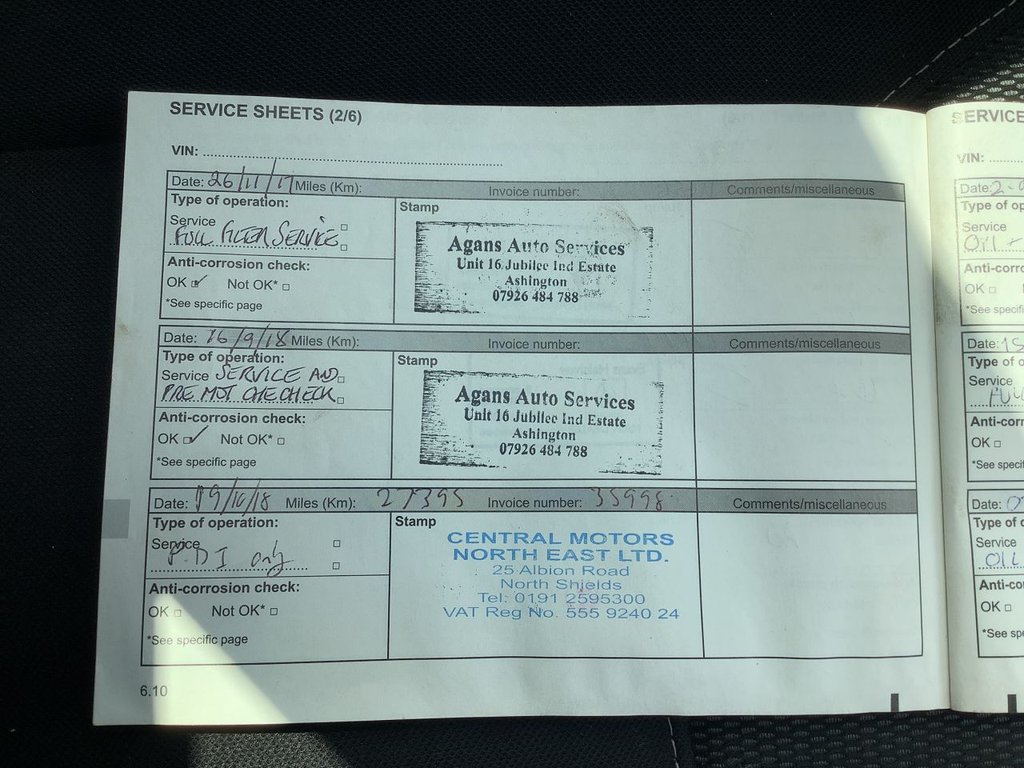 SERVICE SHEETS (2/6)
VIN:
Date: 26/11/17 Miles (Km): Invoice number: Comments/miscellaneous
Type of operation:
Service
FULL FILTER SERVICE
Anti-corrosion check:
OK ✓ Not OK*
*See specific page
Stamp
Agans Auto Services
Unit 16 Jubilee Ind Estate
Ashington
07926 484 788
Date: 16/9/18 Miles (Km): Invoice number: Comments/miscellaneous
Type of operation:
Service SERVICE AND
PRE MOT CHECHECK
Anti-corrosion check:
OK ✓ Not OK*
*See specific page
Stamp
Agans Auto Services
Unit 16 Jubilee Ind Estate
Ashington
07926 484 788
Date: 19/10/18 Miles (Km): 27395 Invoice number: 35998 Comments/miscellaneous
Type of operation:
Service
P.D I only
Anti-corrosion check:
OK Not OK*
*See specific page
Stamp
CENTRAL MOTORS
NORTH EAST LTD.
25 Albion Road
North Shields
Tel: 0191 2595300
VAT Reg No. 555 9240 24
6.10
SERVICE
VIN:
Date: 2-
Type of op
Service
OIL +
Anti-corro
OK
*See specifi
Date: 15
Type of
Service
FUL
Anti-corr
OK
*See specif
Date: 0
Type of
Service
OIL
Anti-co
OK
*See sp